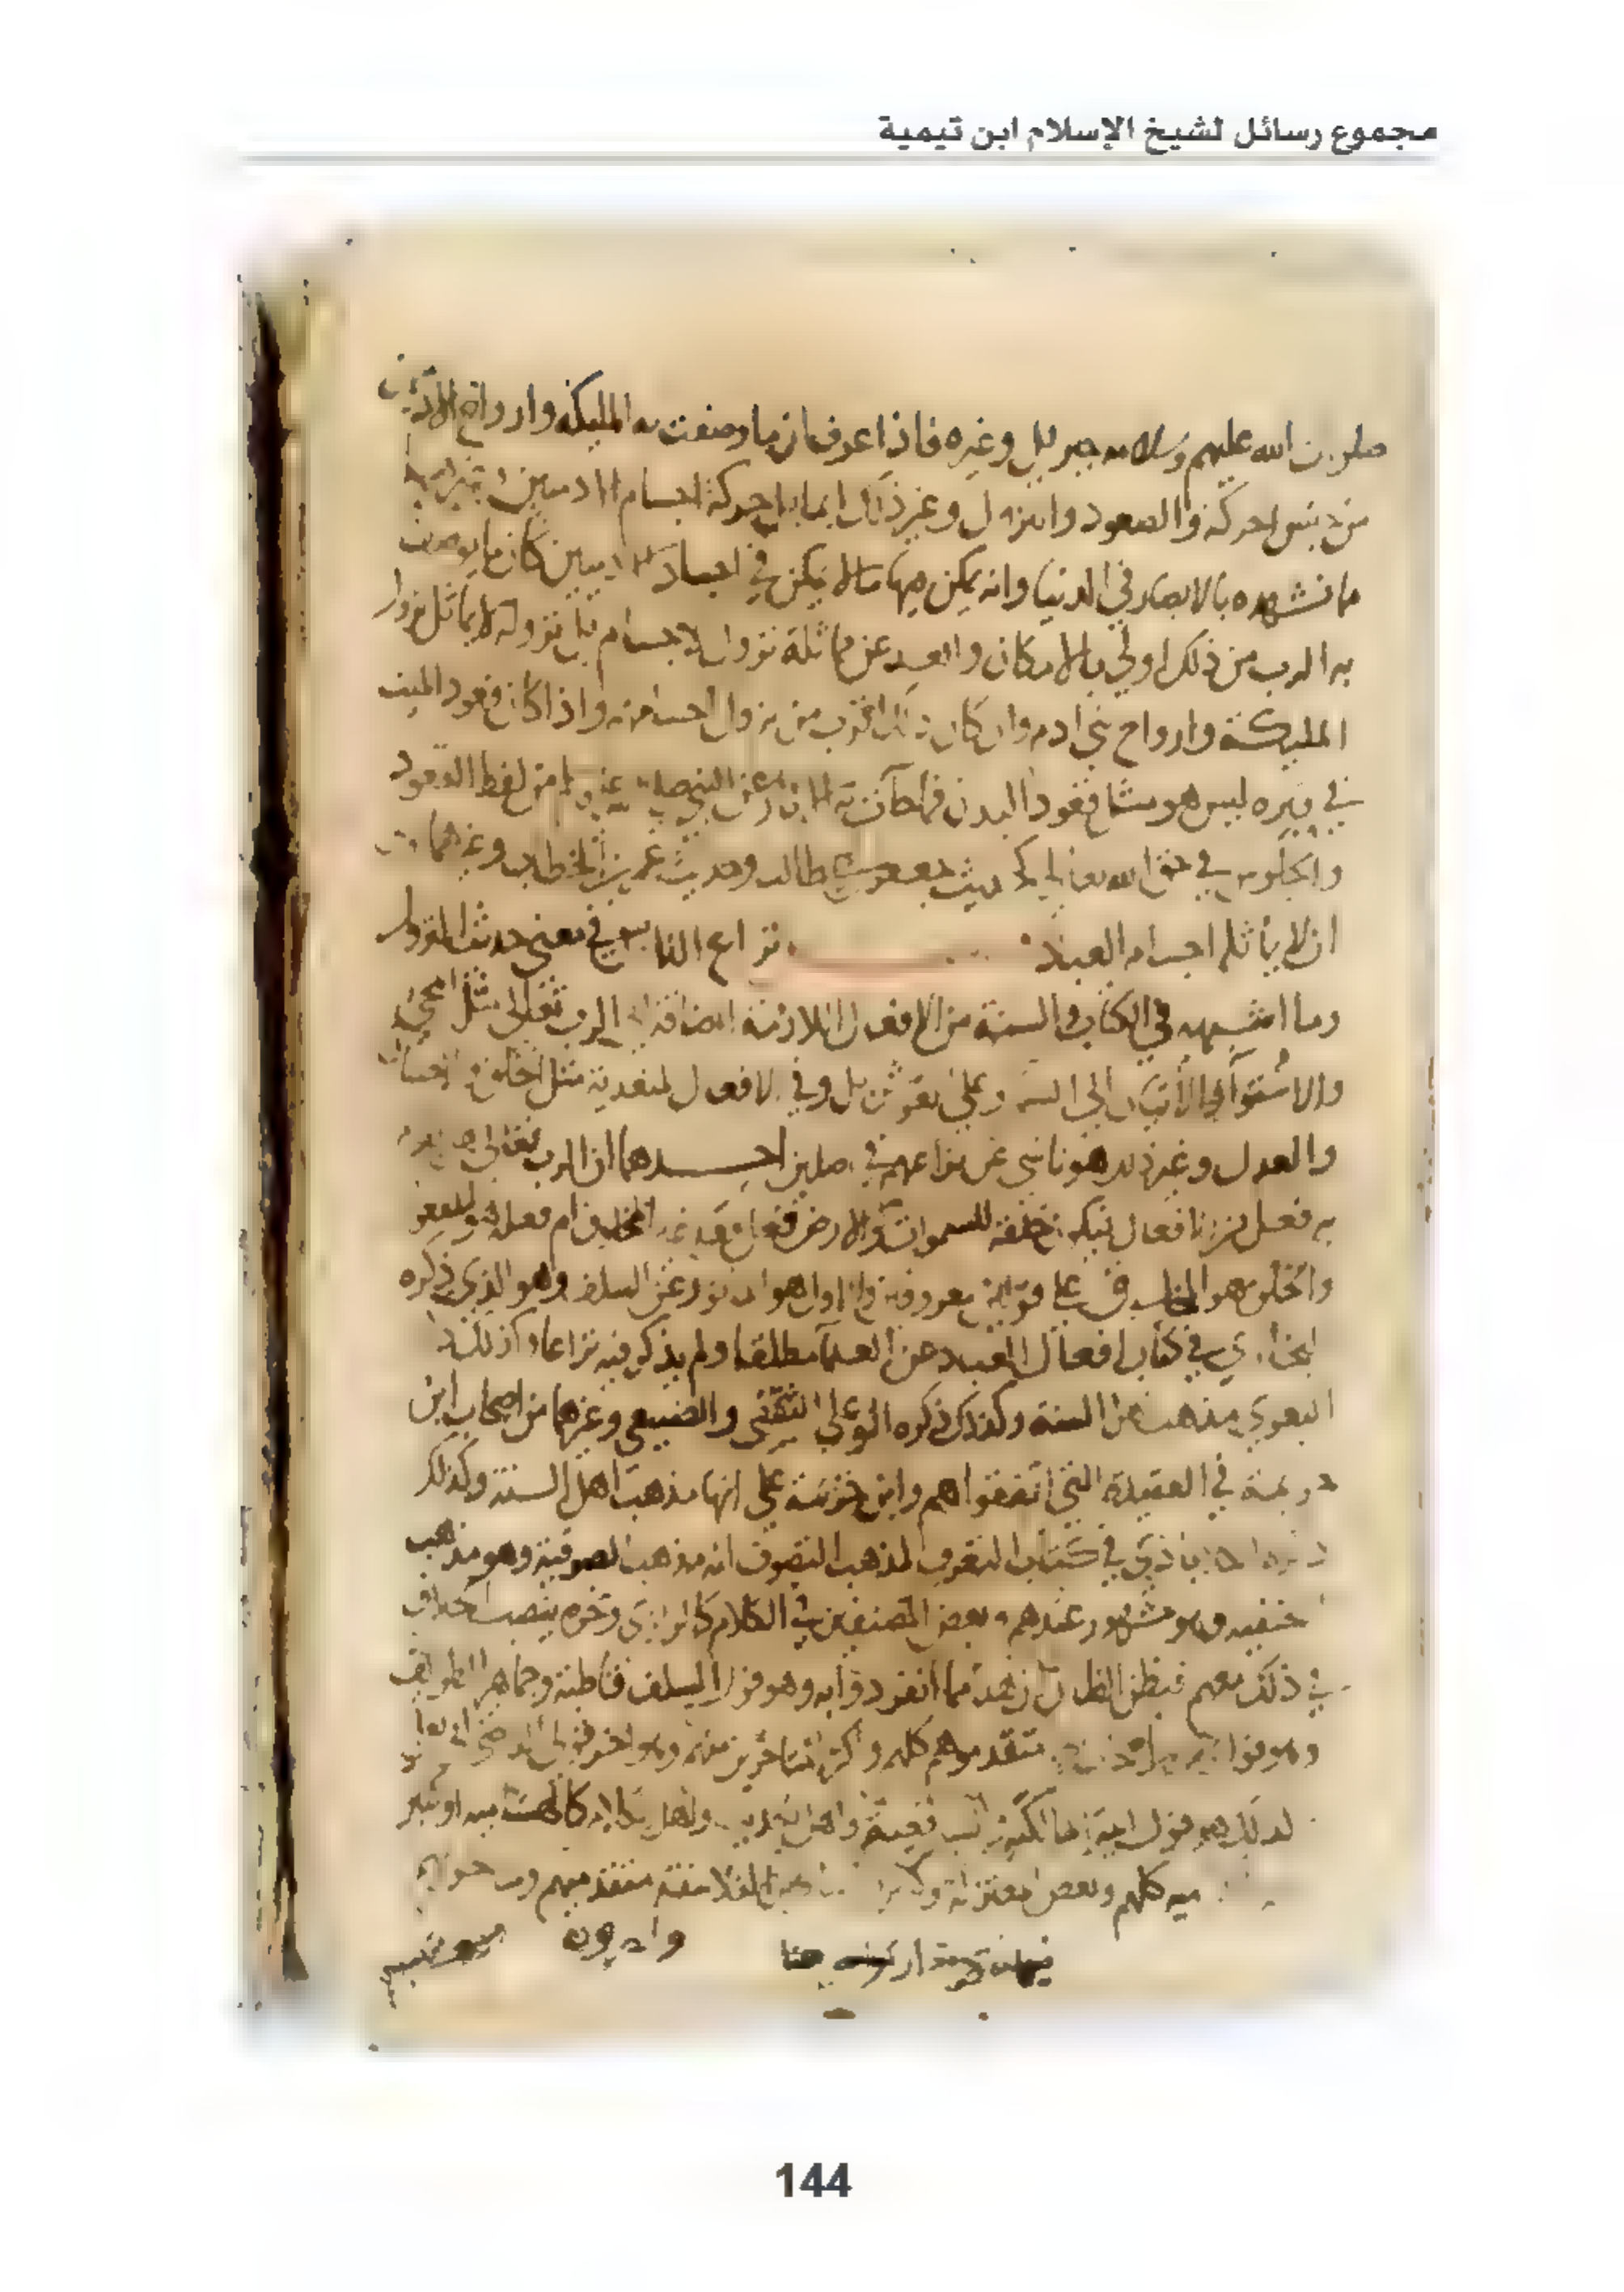 مجموع رسائل لشيخ الإسلام ابن تيمية
صلوات الله عليهم وسلامه جبريل وغيره فاذا عرف ان ما وصفت به المليكه وارواح الادميين
من جنس الحركة والصعود والنزول وغير ذلك لا يماثل حركة اجسام الادميين وغيرها
ما نشهده بالابصار في الدنيا وانه يمكن فيها ما لا يمكن في اجساد الادميين كان ما يوصف
به الرب من ذلك اولى بالامكان وابعد عن مماثلة نزول الاجسام بل نزوله لا يماثل نزول
المليكة وارواح بني ادم وان كان ذلك اقرب من نزول اجسامهم واذا كان قعود الميت
في قبره ليس هو مثل قعود البدن فما جاءت به الاثار عن النبي صلى الله عليه وسلم من لفظ القعود
والجلوس في حق الله تعالى كحديث جعفر بن ابي طالب وحديث عمر بن الخطاب وغيرهما
ان لا يماثل اجسام العباد نزاع الناس في معنى حديث النزول
وما اشبهه في الكتاب والسنة من الافعال اللازمة المضافة الى الرب تعالى مثل المجي
والاستوآ والاتيان الى السما وعلى العرش بل وفي الافعال المتعدية مثل الخلق والاحسان
والعدل وغير ذلك هو ناشي عن نزاعهم في اصلين احدهما ان الرب تعالى هل يقوم
به فعل من الافعال فيكون خلقه للسموات والارض فعلا فعله غير المخلوق ام فعله هو المفعول
والخلق هو المخلوق على قولين معروفين والاول هو الماثور عن السلف وهو الذي ذكره
البخاري في كتاب افعال العباد عن العلمآ مطلقا ولم يذكر فيه نزاعا وكذلك ذكره
البغوي مذهب اهل السنة وكذلك ذكره ابو علي الثقفي والضبعي وغيرهما من اصحاب ابن
خزيمة في العقيدة التي اتفقوا هم وابن خزيمة على انها مذهب اهل السنة وكذلك
ذكره الكلاباذي في كتاب التعرف لمذهب التصوف انه مذهب الصوفية وهو مذهب
الحنفيه وهو مشهور عندهم وبعض المصنفين في الكلام كالرازي ونحوه ينصب الخلاف
في ذلك معهم فيظن الظان ان هذا مما انفردوا به وهو قول السلف قاطبة وجماهير الطوايف
وهو قول متقدموهم كلهم واكثر المتاخرين منهم وهو احد قولي القاضي ابي يعلى
وكذلك هو قول ايمة المالكية والشافعية واهل الحديث واهل الكلام كالهشاميه او كثير
منهم والكراميه كلهم وبعض المعتزلة وكثير من اساطين الفلاسفة متقدميهم ومتاخريهم
144